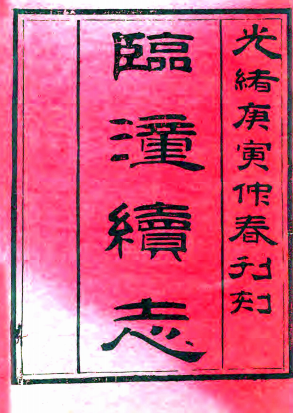 光緒庚寅仲春刊刻
臨潼續志